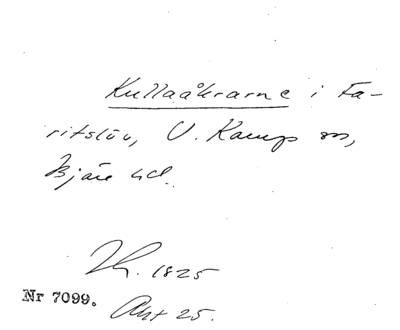 Kullaåkrarne i Fa-
ritslöv, V. Karup sn,
Bjäre hd.
1825
Nr 7099. Akt 25.